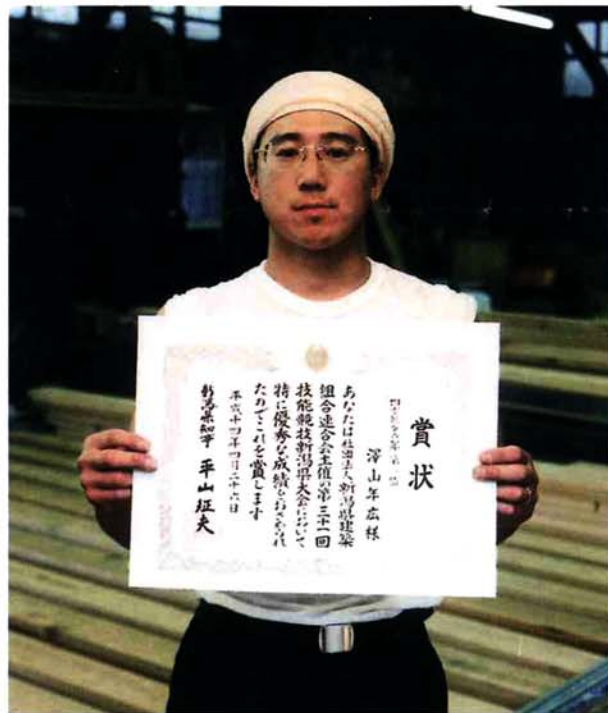 賞状
澤山年広様
あなたは社団法人新潟県建築
組合連合会主催の第三十一回
技能競技新潟県大会において
特に優秀な成績をおさめられ
たのでこれを賞します
平成十四年四月二十六日
新潟県知事 平山征夫